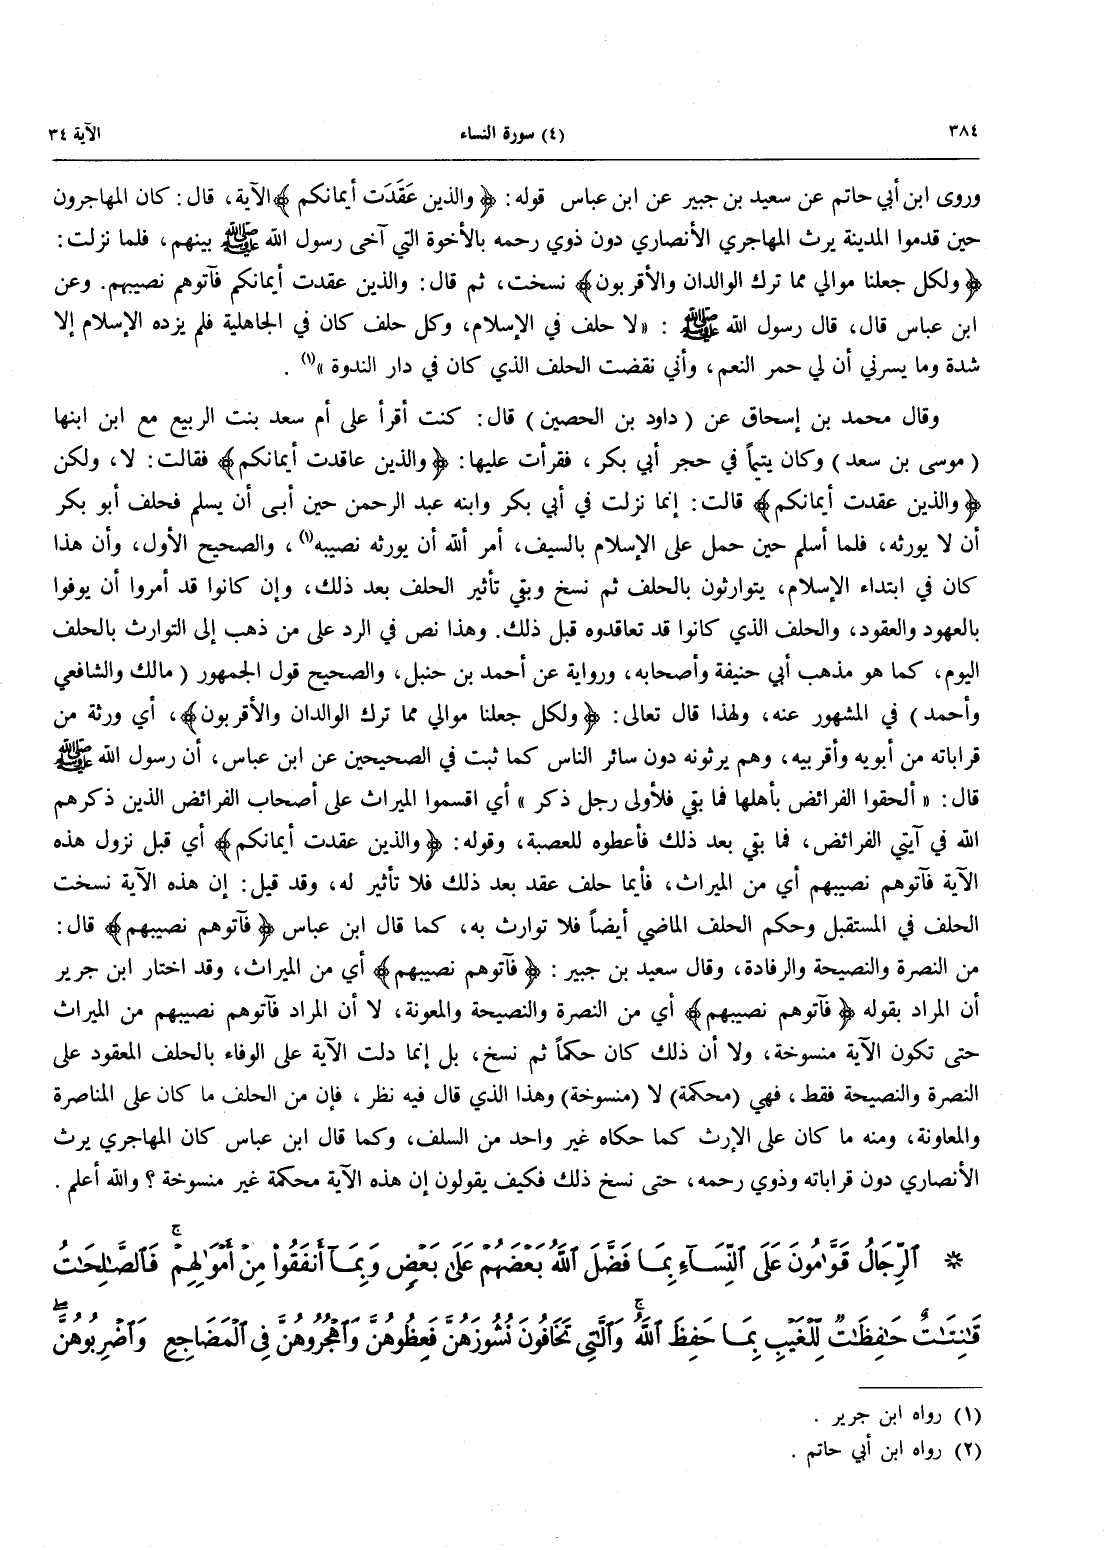 ٣٨٤ (٤) سورة النساء الآية ٣٤
وروى ابن أبي حاتم عن سعيد بن جبير عن ابن عباس قوله: ﴿والذين عَقَدَت أيمانكم﴾ الآية، قال: كان المهاجرون
حين قدموا المدينة يرث المهاجري الأنصاري دون ذوي رحمه بالأخوة التي آخى رسول الله ﷺ بينهم، فلما نزلت:
﴿ولكل جعلنا موالي مما ترك الوالدان والأقربون﴾ نسخت، ثم قال: والذين عقدت أيمانكم فآتوهم نصيبهم. وعن
ابن عباس قال، قال رسول الله ﷺ : «لا حلف في الإسلام، وكل حلف كان في الجاهلية فلم يزده الإسلام إلا
شدة وما يسرني أن لي حمر النعم، وأني نقضت الحلف الذي كان في دار الندوة»(١) .
وقال محمد بن إسحاق عن (داود بن الحصين) قال: كنت أقرأ على أم سعد بنت الربيع مع ابن ابنها
(موسى بن سعد) وكان يتيماً في حجر أبي بكر، فقرأت عليها: ﴿والذين عاقدت أيمانكم﴾ فقالت: لا، ولكن
﴿والذين عقدت أيمانكم﴾ قالت: إنما نزلت في أبي بكر وابنه عبد الرحمن حين أبـى أن يسلم فحلف أبو بكر
أن لا يورثه، فلما أسلم حين حمل على الإسلام بالسيف، أمر الله أن يورثه نصيبه(١)، والصحيح الأول، وأن هذا
كان في ابتداء الإسلام، يتوارثون بالحلف ثم نسخ وبقي تأثير الحلف بعد ذلك، وإن كانوا قد أمروا أن يوفوا
بالعهود والعقود، والحلف الذي كانوا قد تعاقدوه قبل ذلك. وهذا نص في الرد على من ذهب إلى التوارث بالحلف
اليوم، كما هو مذهب أبي حنيفة وأصحابه، ورواية عن أحمد بن حنبل، والصحيح قول الجمهور (مالك والشافعي
وأحمد) في المشهور عنه، ولهذا قال تعالى: ﴿ولكل جعلنا موالي مما ترك الوالدان والأقربون﴾، أي ورثة من
قراباته من أبويه وأقربيه، وهم يرثونه دون سائر الناس كما ثبت في الصحيحين عن ابن عباس، أن رسول الله ﷺ
قال: «ألحقوا الفرائض بأهلها فما بقي فلأولى رجل ذكر» أي اقسموا الميراث على أصحاب الفرائض الذين ذكرهم
الله في آيتي الفرائض، فما بقي بعد ذلك فأعطوه للعصبة، وقوله: ﴿والذين عقدت أيمانكم﴾ أي قبل نزول هذه
الآية فآتوهم نصيبهم أي من الميراث، فأيما حلف عقد بعد ذلك فلا تأثير له، وقد قيل: إن هذه الآية نسخت
الحلف في المستقبل وحكم الحلف الماضي أيضاً فلا توارث به، كما قال ابن عباس ﴿فآتوهم نصيبهم﴾ قال:
من النصرة والنصيحة والرفادة، وقال سعيد بن جبير: ﴿فآتوهم نصيبهم﴾ أي من الميراث، وقد اختار ابن جرير
أن المراد بقوله ﴿فآتوهم نصيبهم﴾ أي من النصرة والنصيحة والمعونة، لا أن المراد فآتوهم نصيبهم من الميراث
حتى تكون الآية منسوخة، ولا أن ذلك كان حكماً ثم نسخ، بل إنما دلت الآية على الوفاء بالحلف المعقود على
النصرة والنصيحة فقط، فهي (محكمة) لا (منسوخة) وهذا الذي قال فيه نظر، فإن من الحلف ما كان على المناصرة
والمعاونة، ومنه ما كان على الإرث كما حكاه غير واحد من السلف، وكما قال ابن عباس كان المهاجري يرث
الأنصاري دون قراباته وذوي رحمه، حتى نسخ ذلك فكيف يقولون إن هذه الآية محكمة غير منسوخة؟ والله أعلم .
* ٱلرِّجَالُ قَوَّٰمُونَ عَلَى ٱلنِّسَآءِ بِمَا فَضَّلَ ٱللَّهُ بَعْضَهُمْ عَلَىٰ بَعْضٍ وَبِمَآ أَنفَقُوا۟ مِنْ أَمْوَٰلِهِمْ ۚ فَٱلصَّٰلِحَٰتُ
قَٰنِتَٰتٌ حَٰفِظَٰتٌ لِّلْغَيْبِ بِمَا حَفِظَ ٱللَّهُ ۚ وَٱلَّٰتِى تَخَافُونَ نُشُوزَهُنَّ فَعِظُوهُنَّ وَٱهْجُرُوهُنَّ فِى ٱلْمَضَاجِعِ وَٱضْرِبُوهُنَّ ۖ
(١) رواه ابن جرير .
(٢) رواه ابن أبي حاتم .